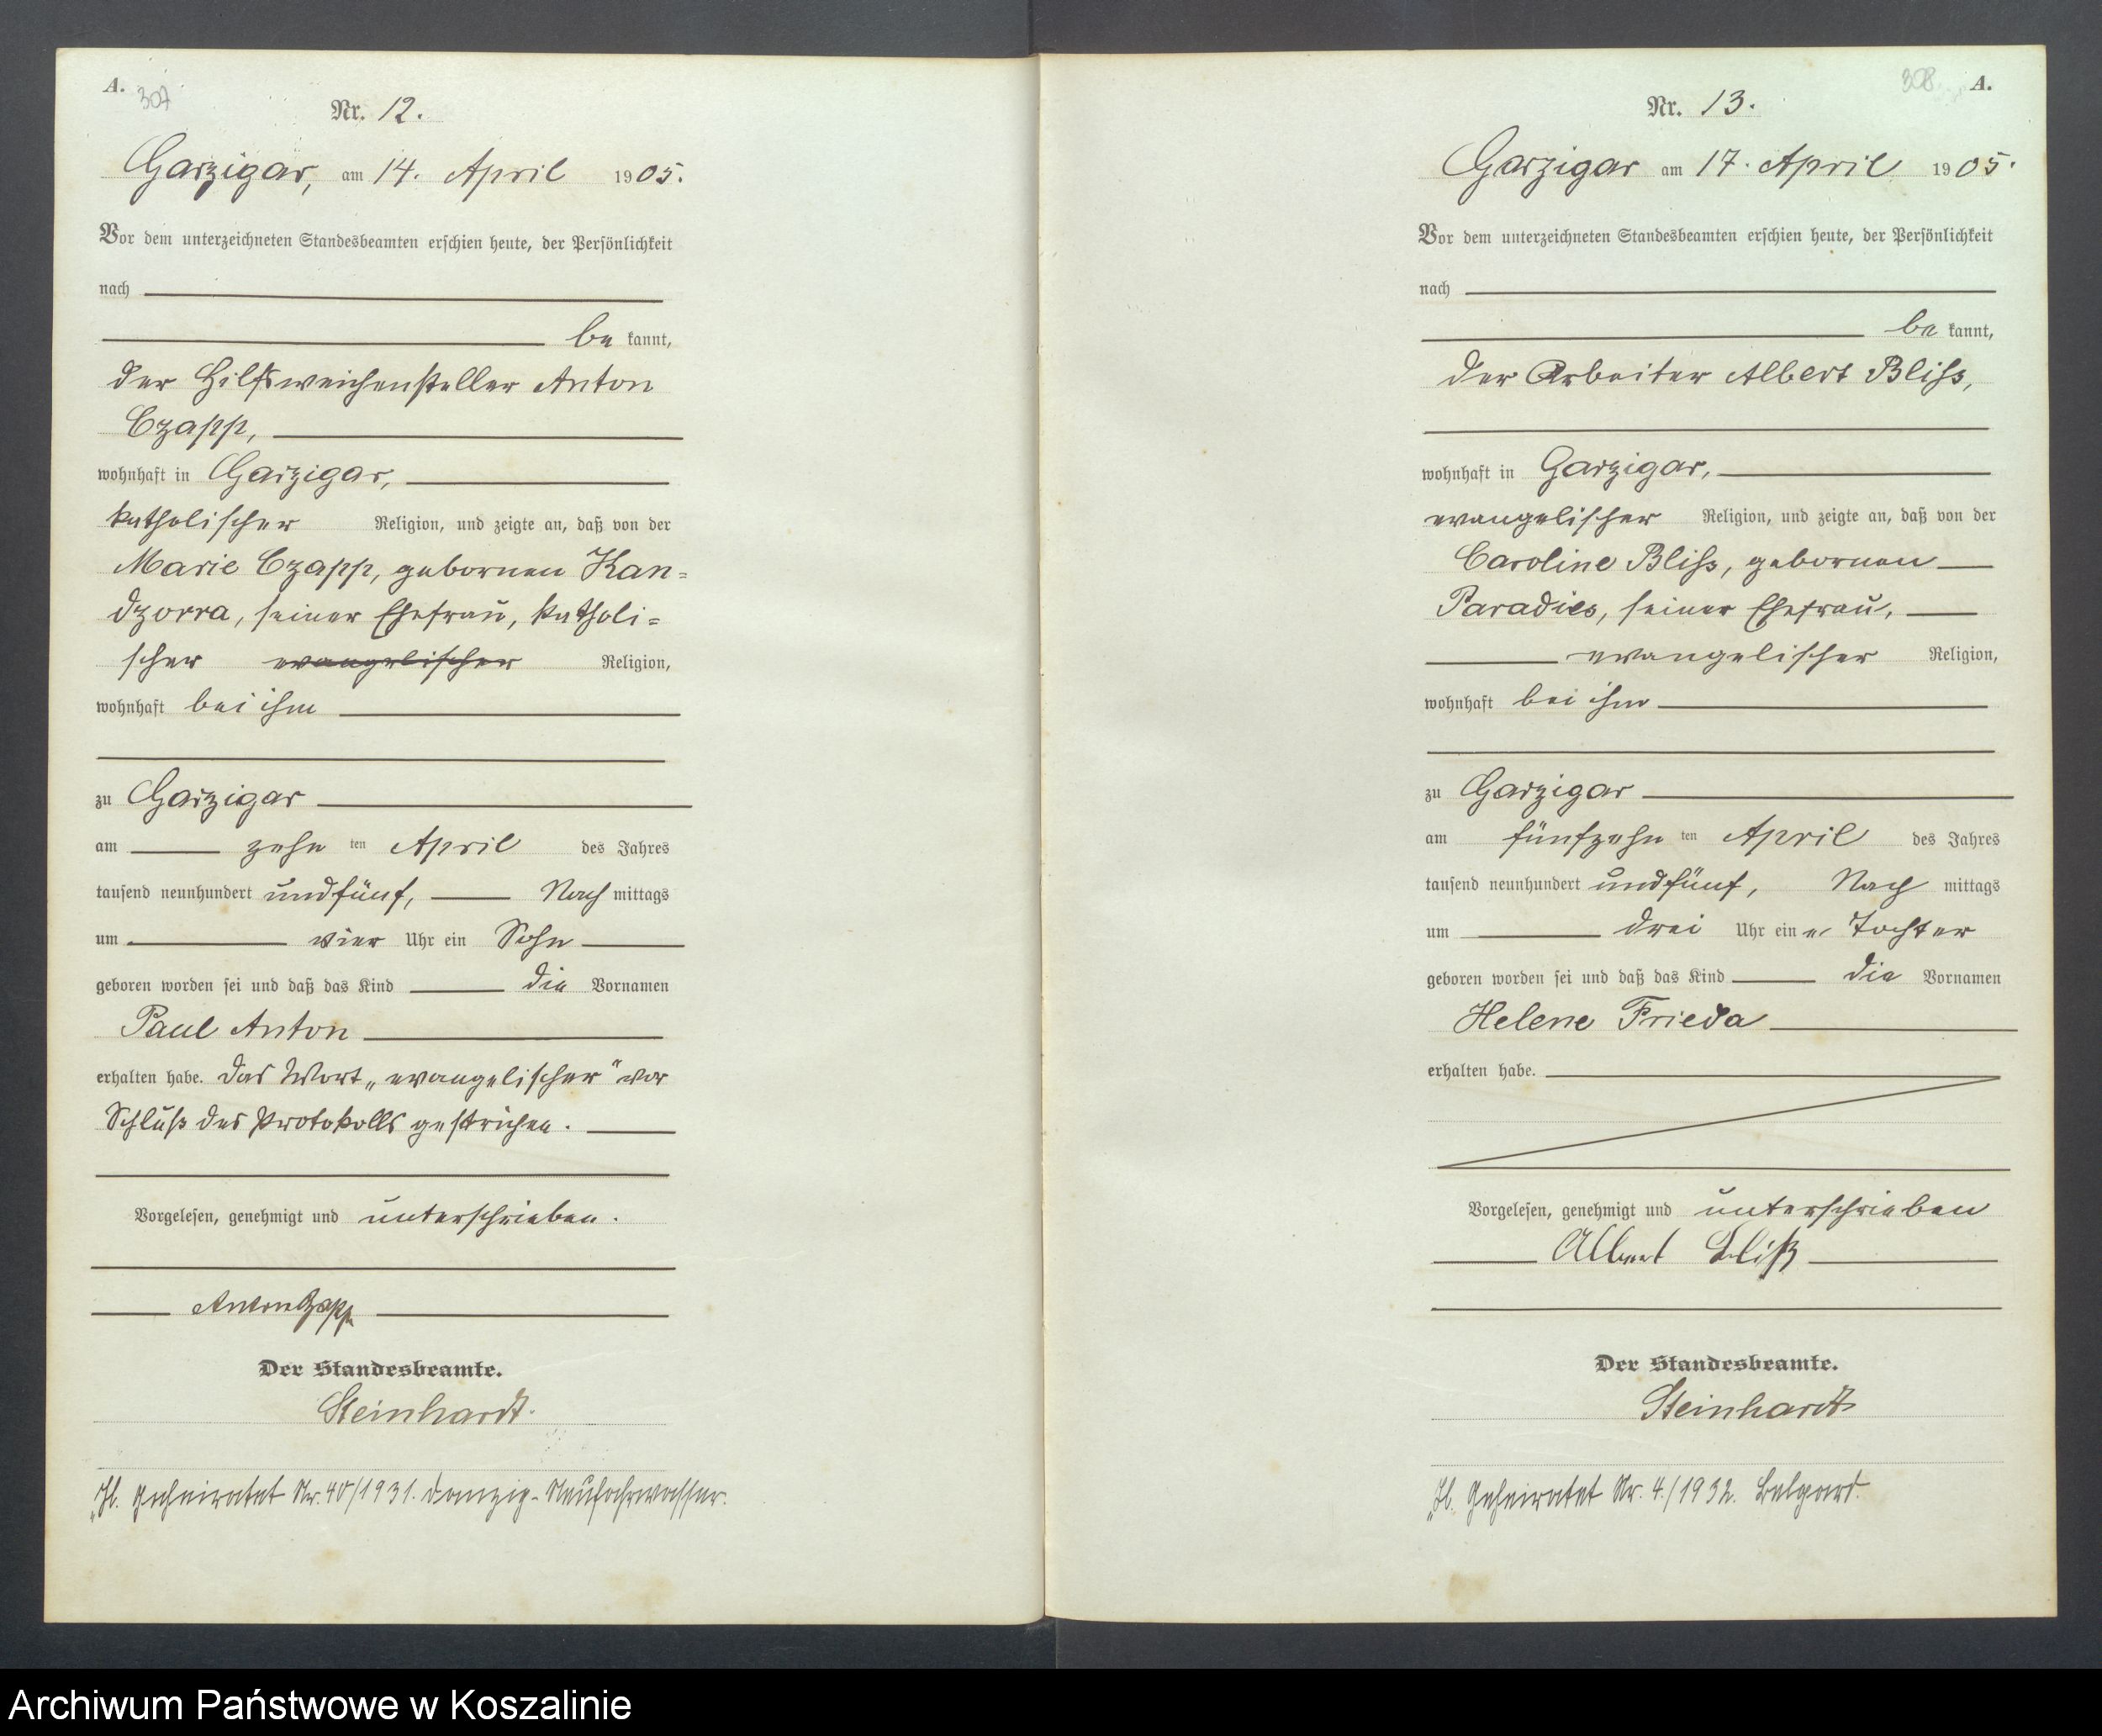 A.
307
Nr. 12.
Garzigar, am 14. April 1905.
Vor dem unterzeichneten Standesbeamten erschien heute, der Persönlichkeit
nach
be kannt,
der Hilfsweichensteller Anton
Czapp,
wohnhaft in Garzigar,
katholischer Religion, und zeigte an, daß von der
Marie Czapp, gebornen Kan=
dzorra, seiner Ehefrau, katholi=
scher evangelischer Religion,
wohnhaft bei ihm
zu Garzigar
am zehn ten April des Jahres
tausend neunhundert undfünf, Nach mittags
um vier Uhr ein Sohn
geboren worden sei und daß das Kind die Vornamen
Paul Anton
erhalten habe. Das Wort „evangelischer" vor
Schluß des Protokolls gestrichen.
Vorgelesen, genehmigt und unterschrieben.
Anton Czapp
Der Standesbeamte.
Steinhardt.
geheiratet Nr. 40/1931. Danzig-Neufahrwasser.
308
A.
Nr. 13.
Garzigar am 17. April 1905.
Vor dem unterzeichneten Standesbeamten erschien heute, der Persönlichkeit
nach
be kannt,
der Arbeiter Albert Bliss,
wohnhaft in Garzigar,
evangelischer Religion, und zeigte an, daß von der
Caroline Bliss, gebornen
Paradies, seiner Ehefrau,
evangelischer Religion,
wohnhaft bei ihm
zu Garzigar
am fünfzehn ten April des Jahres
tausend neunhundert undfünf, Nach mittags
um drei Uhr ein e Tochter
geboren worden sei und daß das Kind die Vornamen
Helene Frieda
erhalten habe.
Vorgelesen, genehmigt und unterschrieben
Albert Bliß
Der Standesbeamte.
Steinhardt
Geheiratet Nr. 4./1932. Belgard.
Archiwum Państwowe w Koszalinie